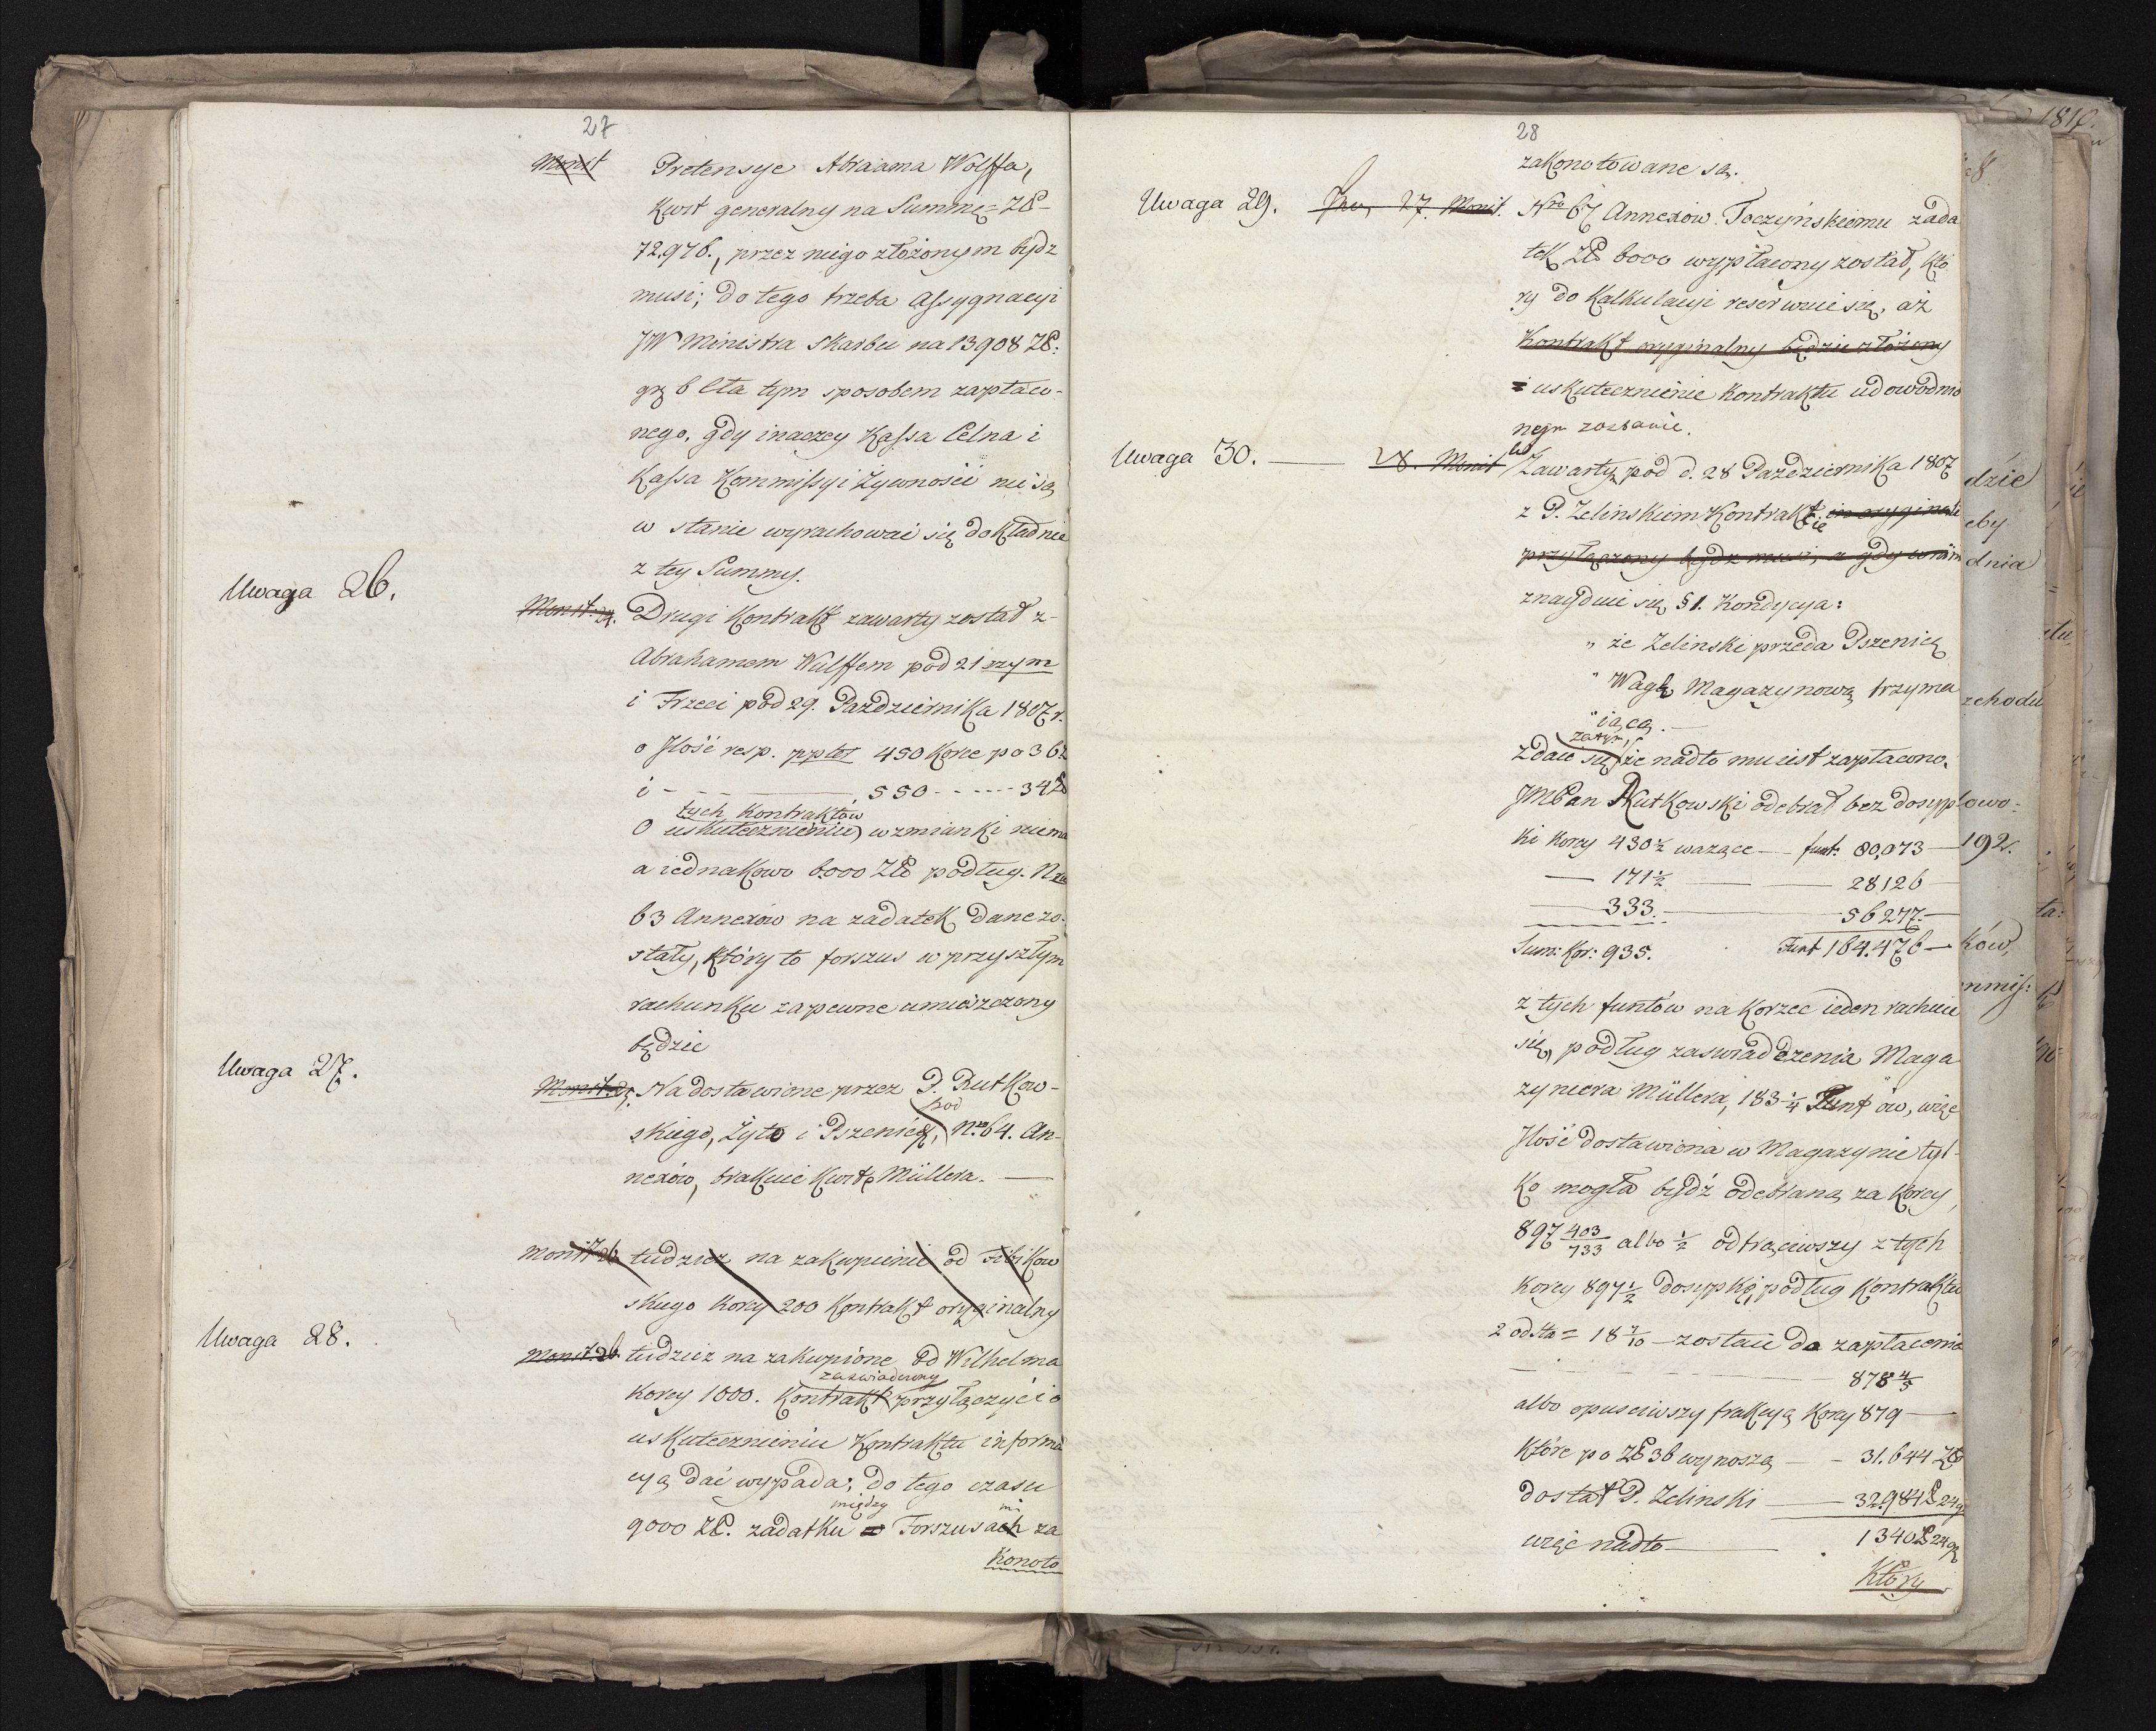 27
Monit Pretensye Abraama Wolffa,
Kwit generalny na Summę = Zł
72.976., przez niego złożonym bydz
musi; do tego trzeba Assygnacyi
JW Ministra Skarbu na 13908 Zł:
gr 6 Cła tym sposobem zapłaco-
nego, gdy inaczey Kassa Celna i
Kassa Kommissyi Żywności nie są
w stanie wyrachować się dokładnie
z tey Summy.
Uwaga 26.
Monit Drugi Kontrakt zawarty został z-
Abrahamem Wulffem pod 21 szym
i Trzeci pod 29. Pazdziernika 1807 r.
o Ilość resp. 450 Korce po 36 zł
i - 550 - - - - - 34 zł
tych Kontraktów
O uskutecznieniu wzmianki niema
a iednakowo 6.000 Zł podług. Nru
63 Annexów na zadatek dane zo-
stały, który to forszus w przyszłym
rachunku zapewne umieszczony
będzie
Uwaga 27.
Monit Na dostawione przez P. Rutkow-
pod
skiego, Żyto i Pszenicę, Nro 64. An-
nexów, brakuie Kwitę Müllera. —
Monit 26 tudziez na zakupienie od Fibikow
skiego Korcy 200 Kontrakt oryginalny
Uwaga 28.
Monit. 26. tudziez na zakupione od Wilhelma
zaswiadczony
Korcy 1000. Kontrakt przyłączyć i o
uskutecznieniu Kontraktu informa
cyą dać wypada; do tego czasu
między mi
9000 Zł. zadatku w Forszusach za
Konoto
28
zakonotowane są.
Uwaga 29. 27. Monit. Nro 67 Annexów. Toczyńskiemu zada
tek Zł 6000 wypłacony został, któ
ry do Kalkulacyi reserwuie się, aż
Kontrakt oryginalny będzie złożony
i uskutecznienie Kontraktu udowodnio
nem zostanie.
Uwaga 30. — 28. Monit
W
Zawartym pod d. 28 Pazdziernika 1807
z P. Zelinskim Kontrakcie in originali
przyłączony bydz musi, a gdy w nim
znayduie się § 1. Kondycya:
" że Zelinski przeda Pszenicę
" Wagę Magazynową trzyma
" iącą. —
zatym,
Zdaie się że nadto mu iest zapłacono.
JMPan Rutkowski odebrał bez dosyp
ki Korcy 430 1/2 wazące — funt: 80,073 —
— 171 1/2 — — 28,126 —
— 333. — 56 277. —
Sum: Kor: 935. Funt 164.476 —
z tych funtów na Korzec ieden rachuie
się, podług zaswiadczenia Maga
zyniera Müllera, 183 1/4 Funtów, więc
Ilość dostawiona w Magazynie tyl-
ko mogła bydź odebraną za Korcy,
897 403/733 albo 1/2 odtrąciwszy z tych
Korcy 897 1/2 dosypkę, podług Kontraktu
2 od Sta = 18 7/10 — zostaie do zapłacenia
— — 878 4/5
albo opusciwszy frakcyą Korcy 879 —
Które po Zł 36 wynoszą — - 31.644 Zł
dostał P. Zelinski — 32984 Zł 24 gr
więc nadto — 1340 Zł 24 gr
Który
1810.
dzie
eby
dnia
zchodu
owo:
192.
ków,
nmis: